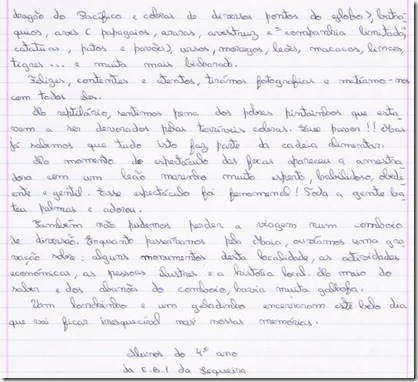 dragão do Pacífico e cobras de diversos pontos do globo), batrá-
quios, aves (papagaios, araras, avestruz e companhia limitada,
catatuas, patos e pavões), ursos, morcegos, leões, macacos, linces,
tigres... e muita mais bicharada.
Felizes, contentes e atentos, tirámos fotografias e metíamo-nos
com todos eles.
No reptilário, sentimos pena dos pobres pintainhos que esta-
vam a ser devorados pelas terríveis cobras. Que pavor!! Mas
já sabemos que tudo isto faz parte da cadeia alimentar.
No momento do espectáculo das focas apareceu a amestra
dora com um leão marinho muito esperto, habilidoso, obedi
ente e gentil. Esse espectáculo foi fenomenal! Toda a gente ba
teu palmas e adorou.
Também não pudemos perder a viagem num comboio
de diversão. Enquanto passeávamos pela Maia, ouvíamos uma gra-
vação sobre: alguns monumentos desta localidade, as actividades
económicas, as pessoas ilustres e a história local. No meio do
saber e dos abanões do comboio, havia muita galhofa.
Um lanchinho e um geladinho encerraram este belo dia
que vai ficar inesquecível nas nossas memórias.
Alunos do 4º ano
da E.B.1 da Sequeira